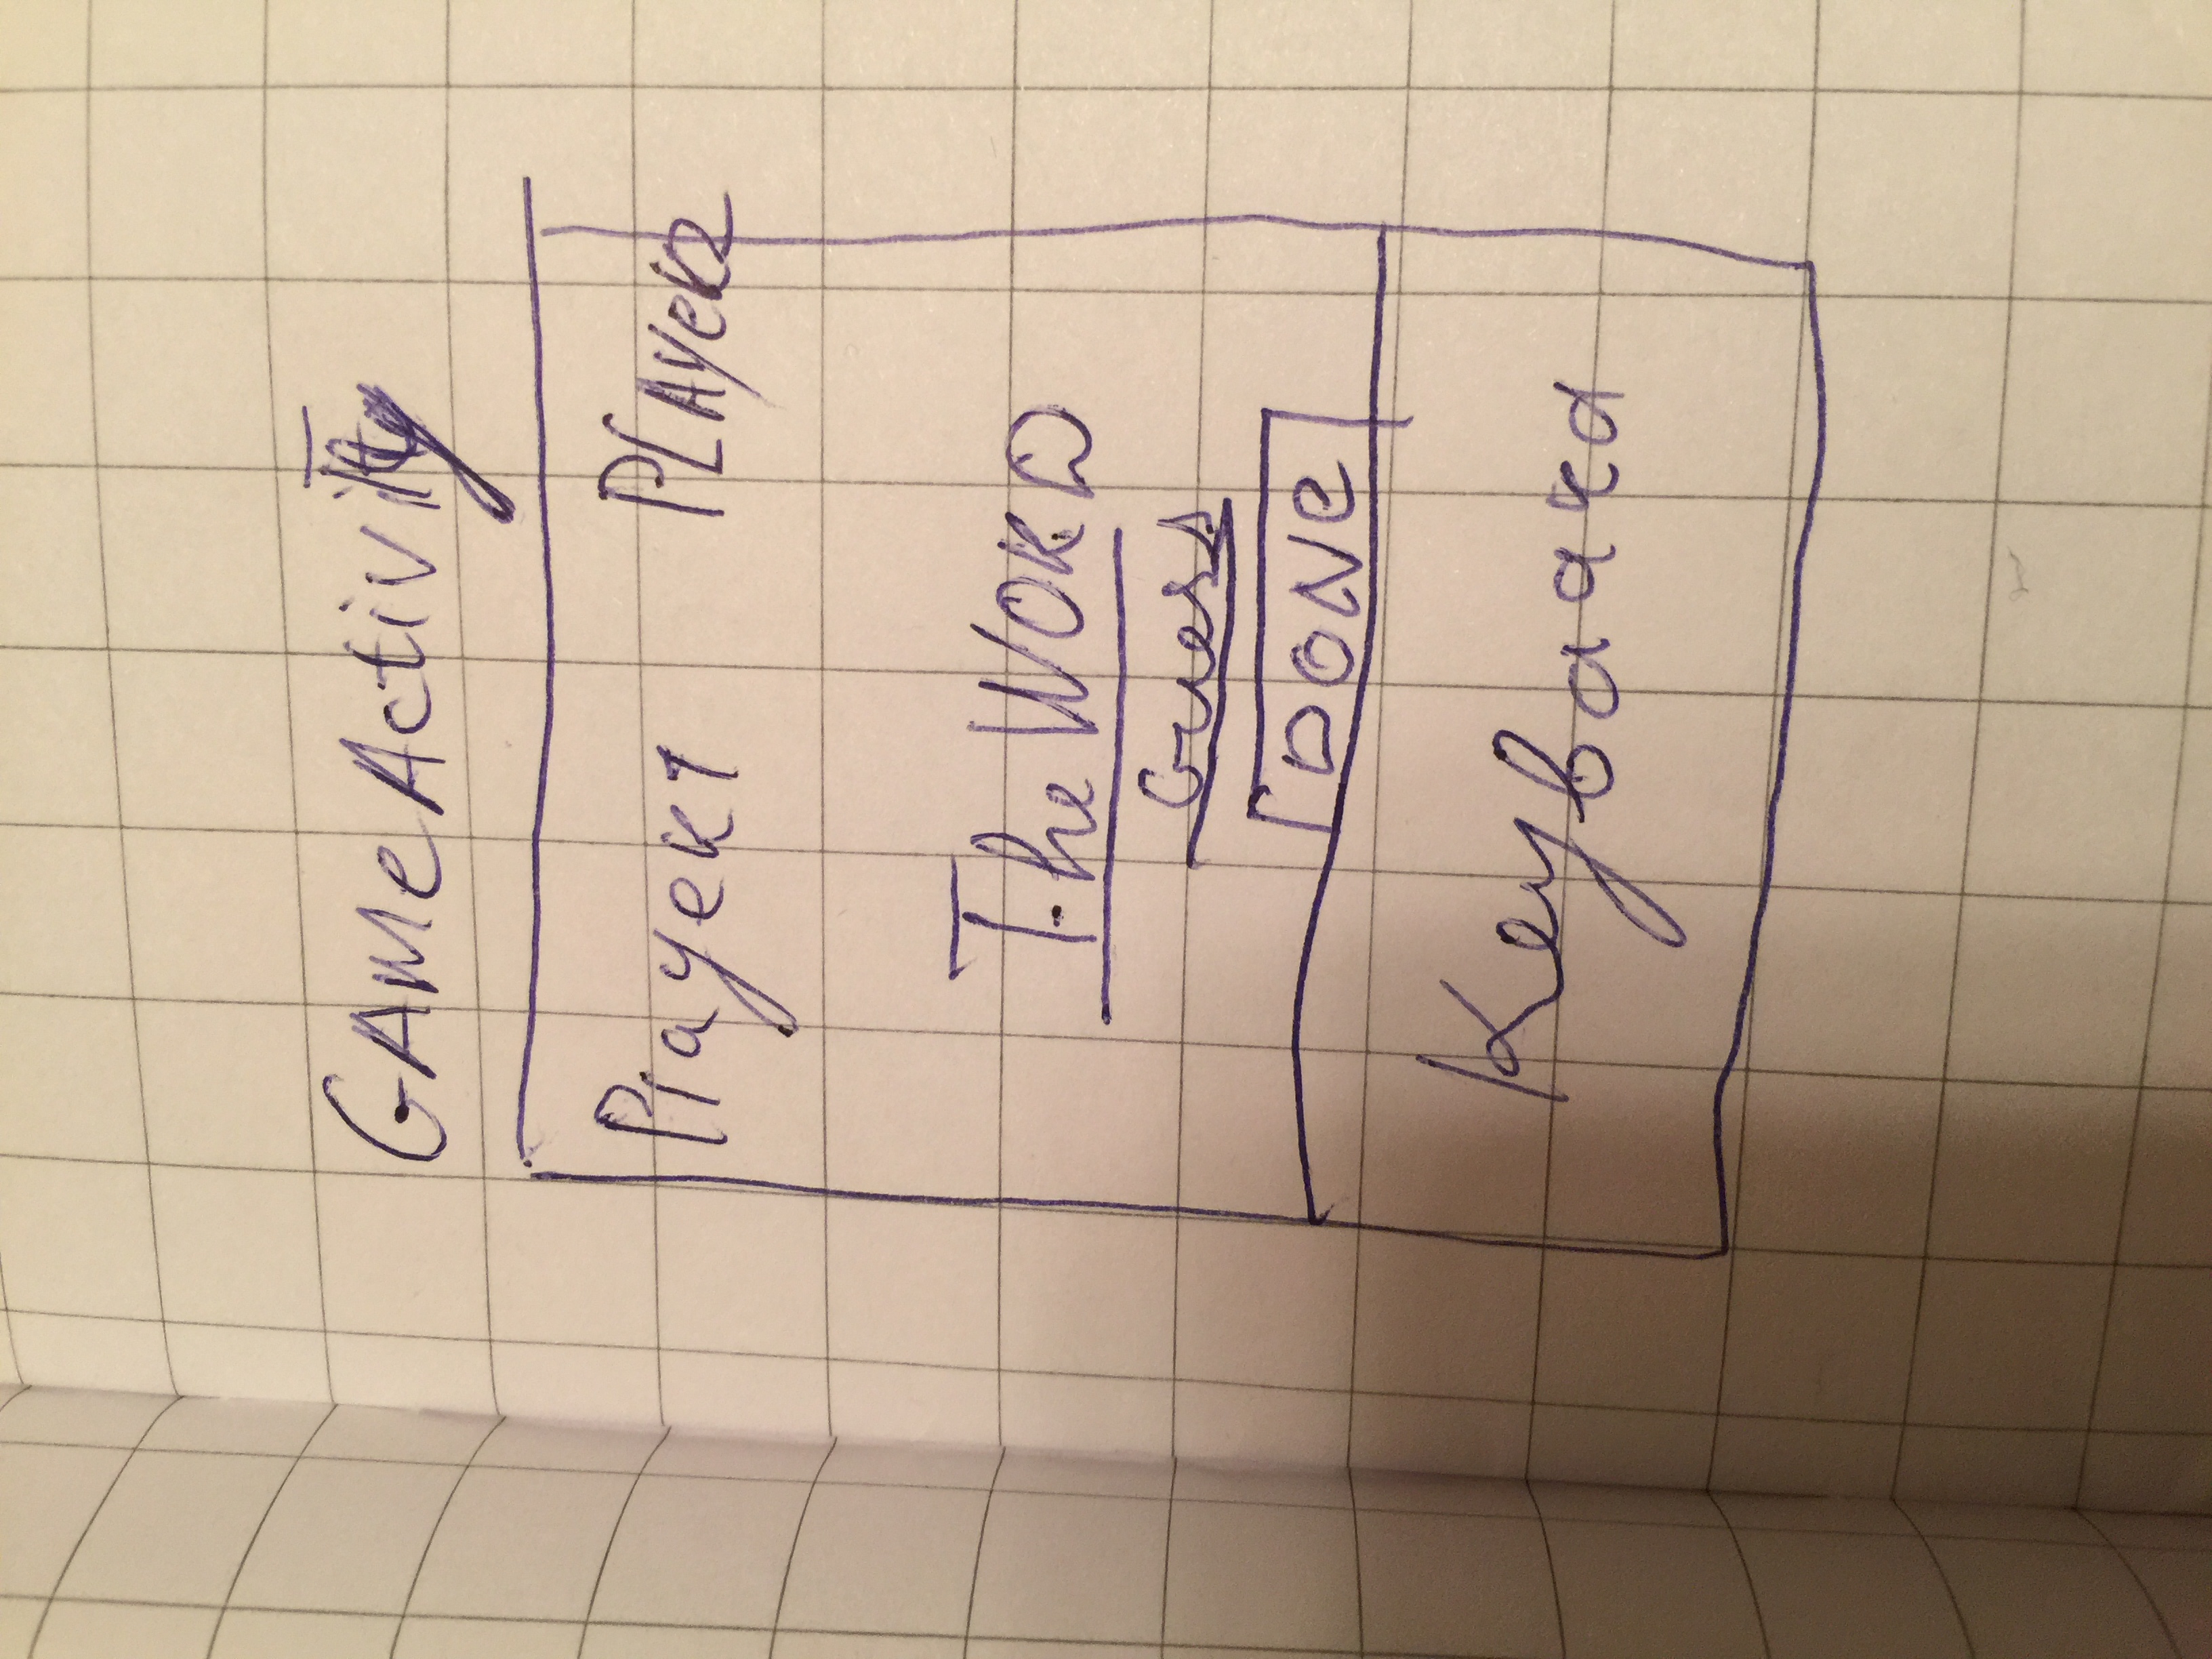 GAMeActivity
Player1 PLAyer2
The WORD
Guess
DONe
Keyboard